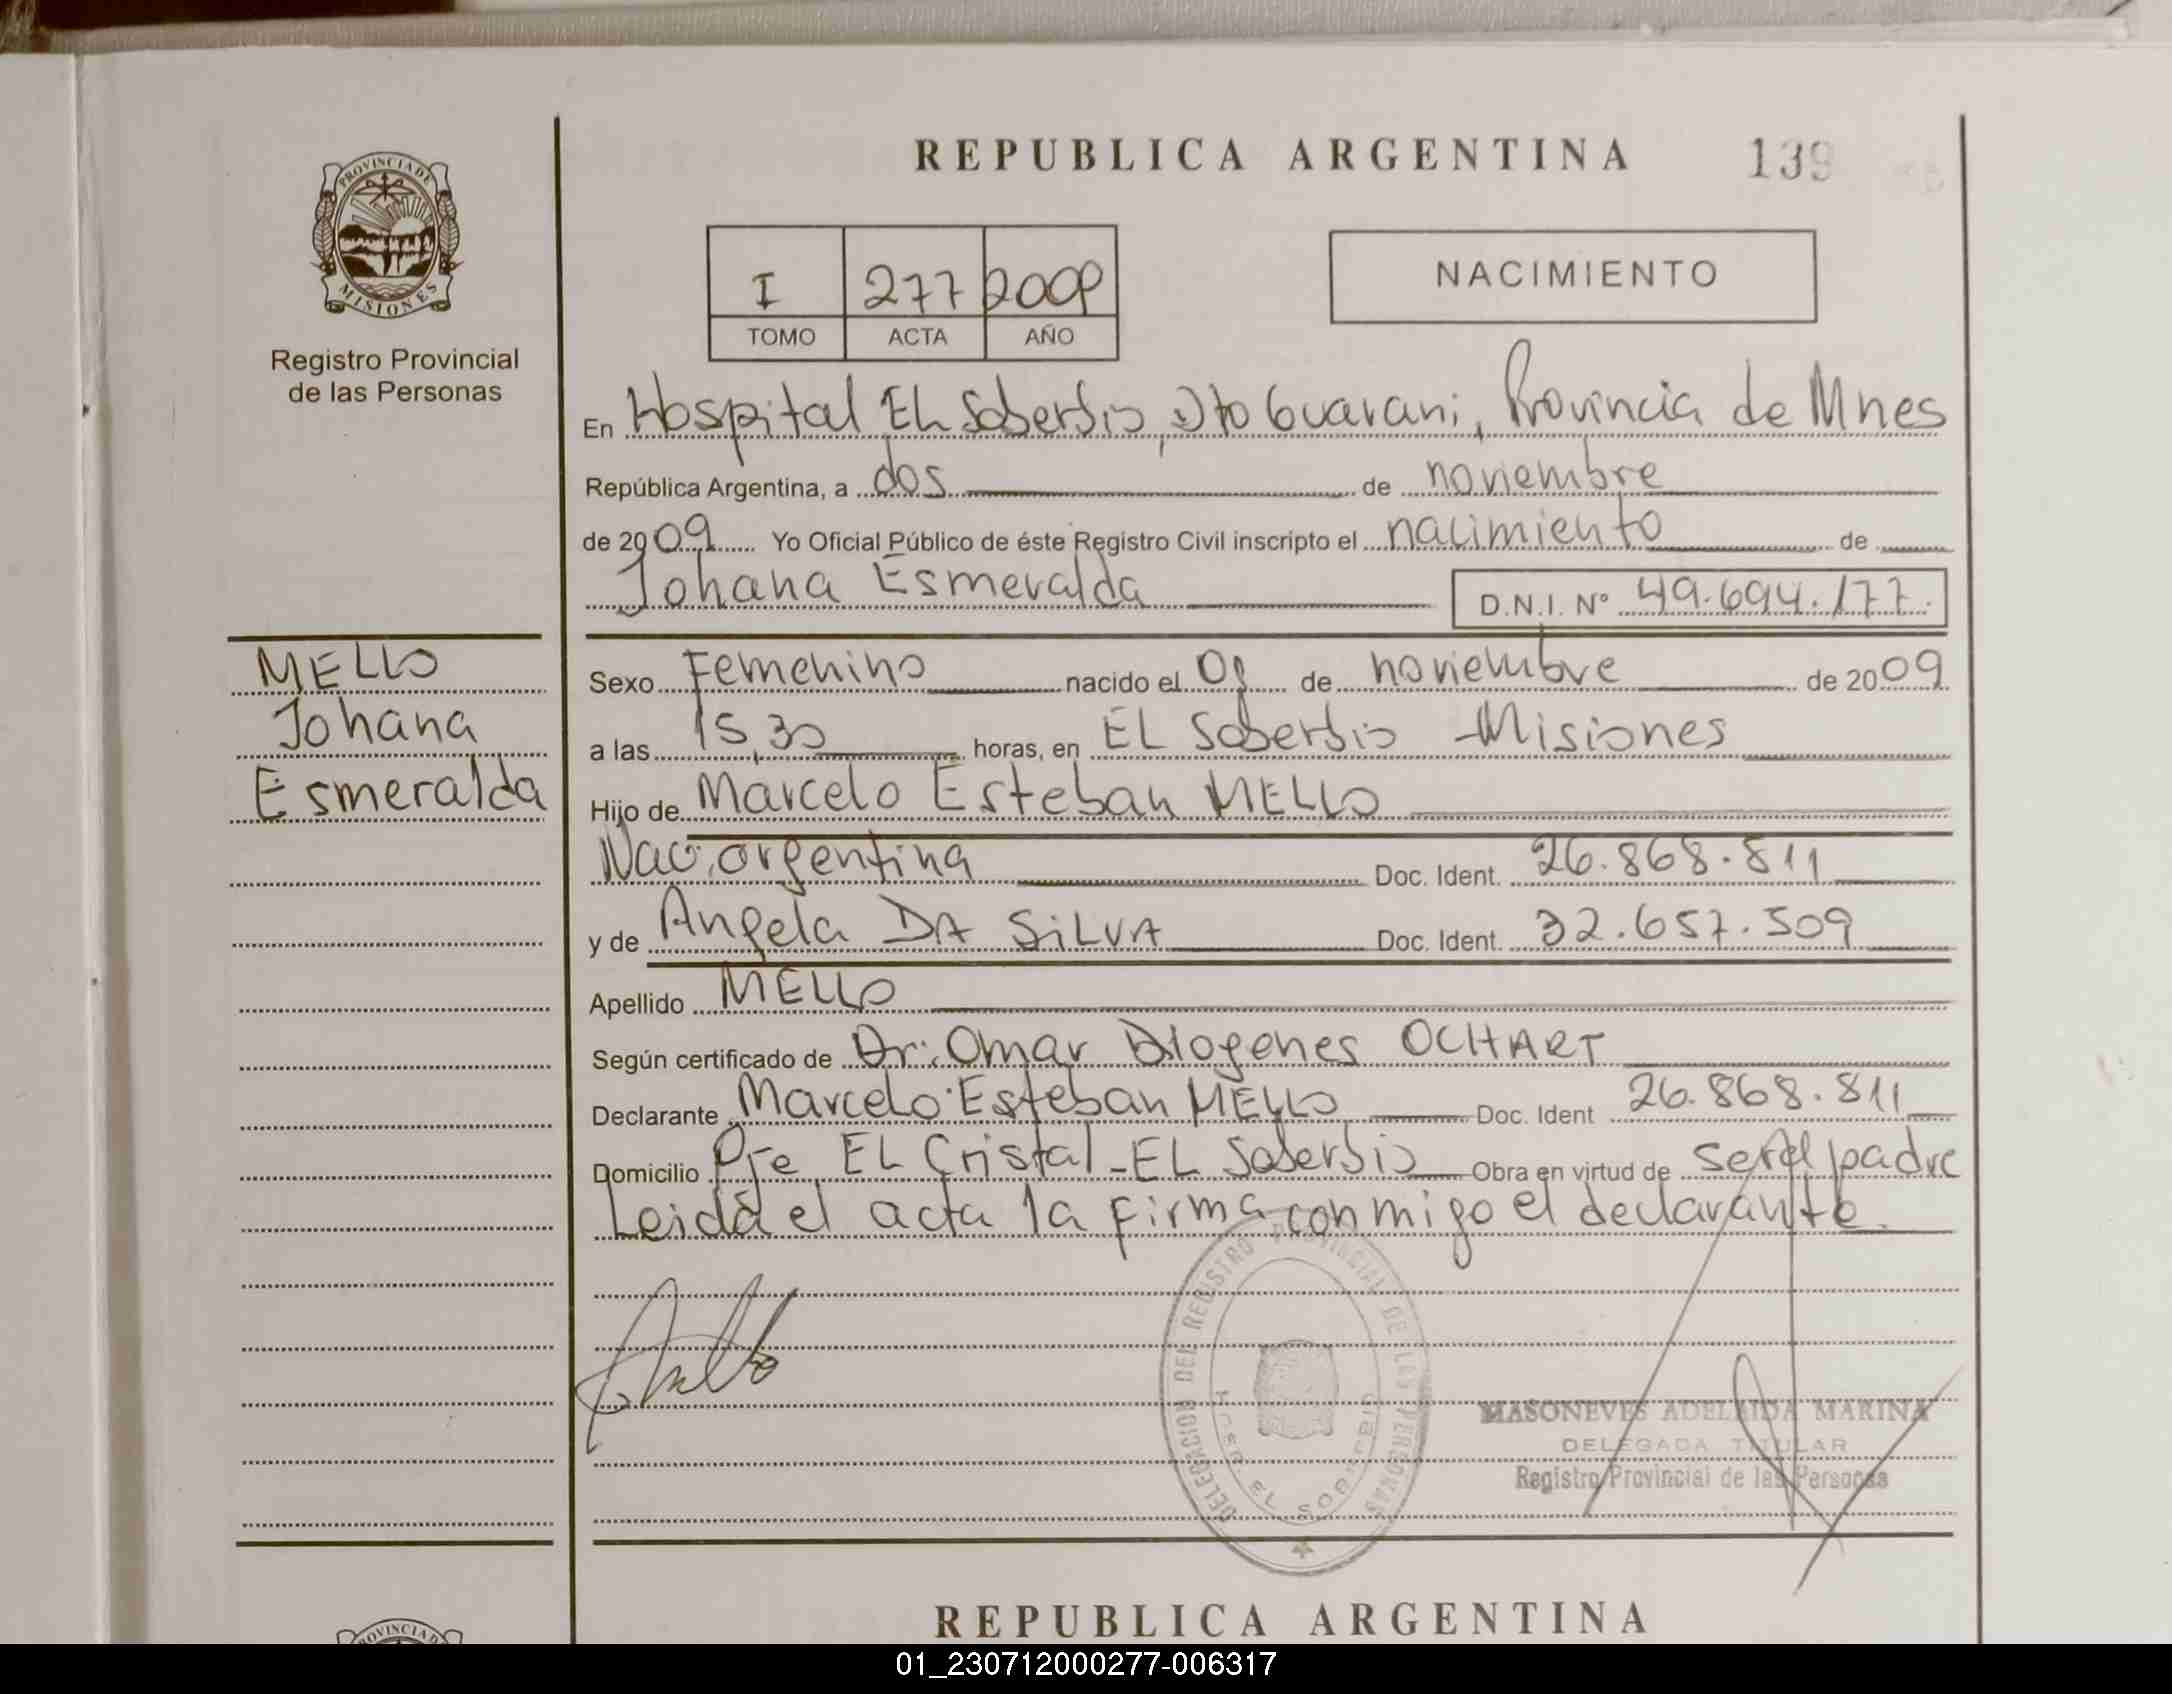 REPUBLICA ARGENTINA 139
PROVINCIA DE MISIONES
Registro Provincial
de las Personas
I 277 2009
TOMO ACTA AÑO
NACIMIENTO
En Hospital EL Soberbio, Dto Guarani, Provincia de Mnes
República Argentina, a dos de noviembre
de 2009 Yo Oficial Público de éste Registro Civil inscripto el nacimiento de
Johana Esmeralda D.N.I. Nº 49.694.177.
MELLO
Johana
Esmeralda
Sexo Femenino nacido el de noviembre de 2009
a las 15,30 horas, en EL Soberbio Misiones
Hijo de Marcelo Esteban MELLO
Nac. argentina Doc. Ident. 26.868.811
y de Angela DA SILVA Doc. Ident. 32.657.509
Apellido MELLO
Según certificado de Dr. Omar Diogenes OCHART
Declarante Marcelo Esteban MELLO Doc. Ident 26.868.811
Domicilio Pje EL Cristal - EL Soberbio Obra en virtud de ser el padre
Leida el acta la firma conmigo el declarante.
DELEGACION DEL REGISTRO PROVINCIAL DE LAS PERSONAS
EL SOBERBIO
MASONEVES ADELAIDA MARINA
DELEGADA TITULAR
Registro Provincial de las Personas
REPUBLICA ARGENTINA
01_230712000277-006317